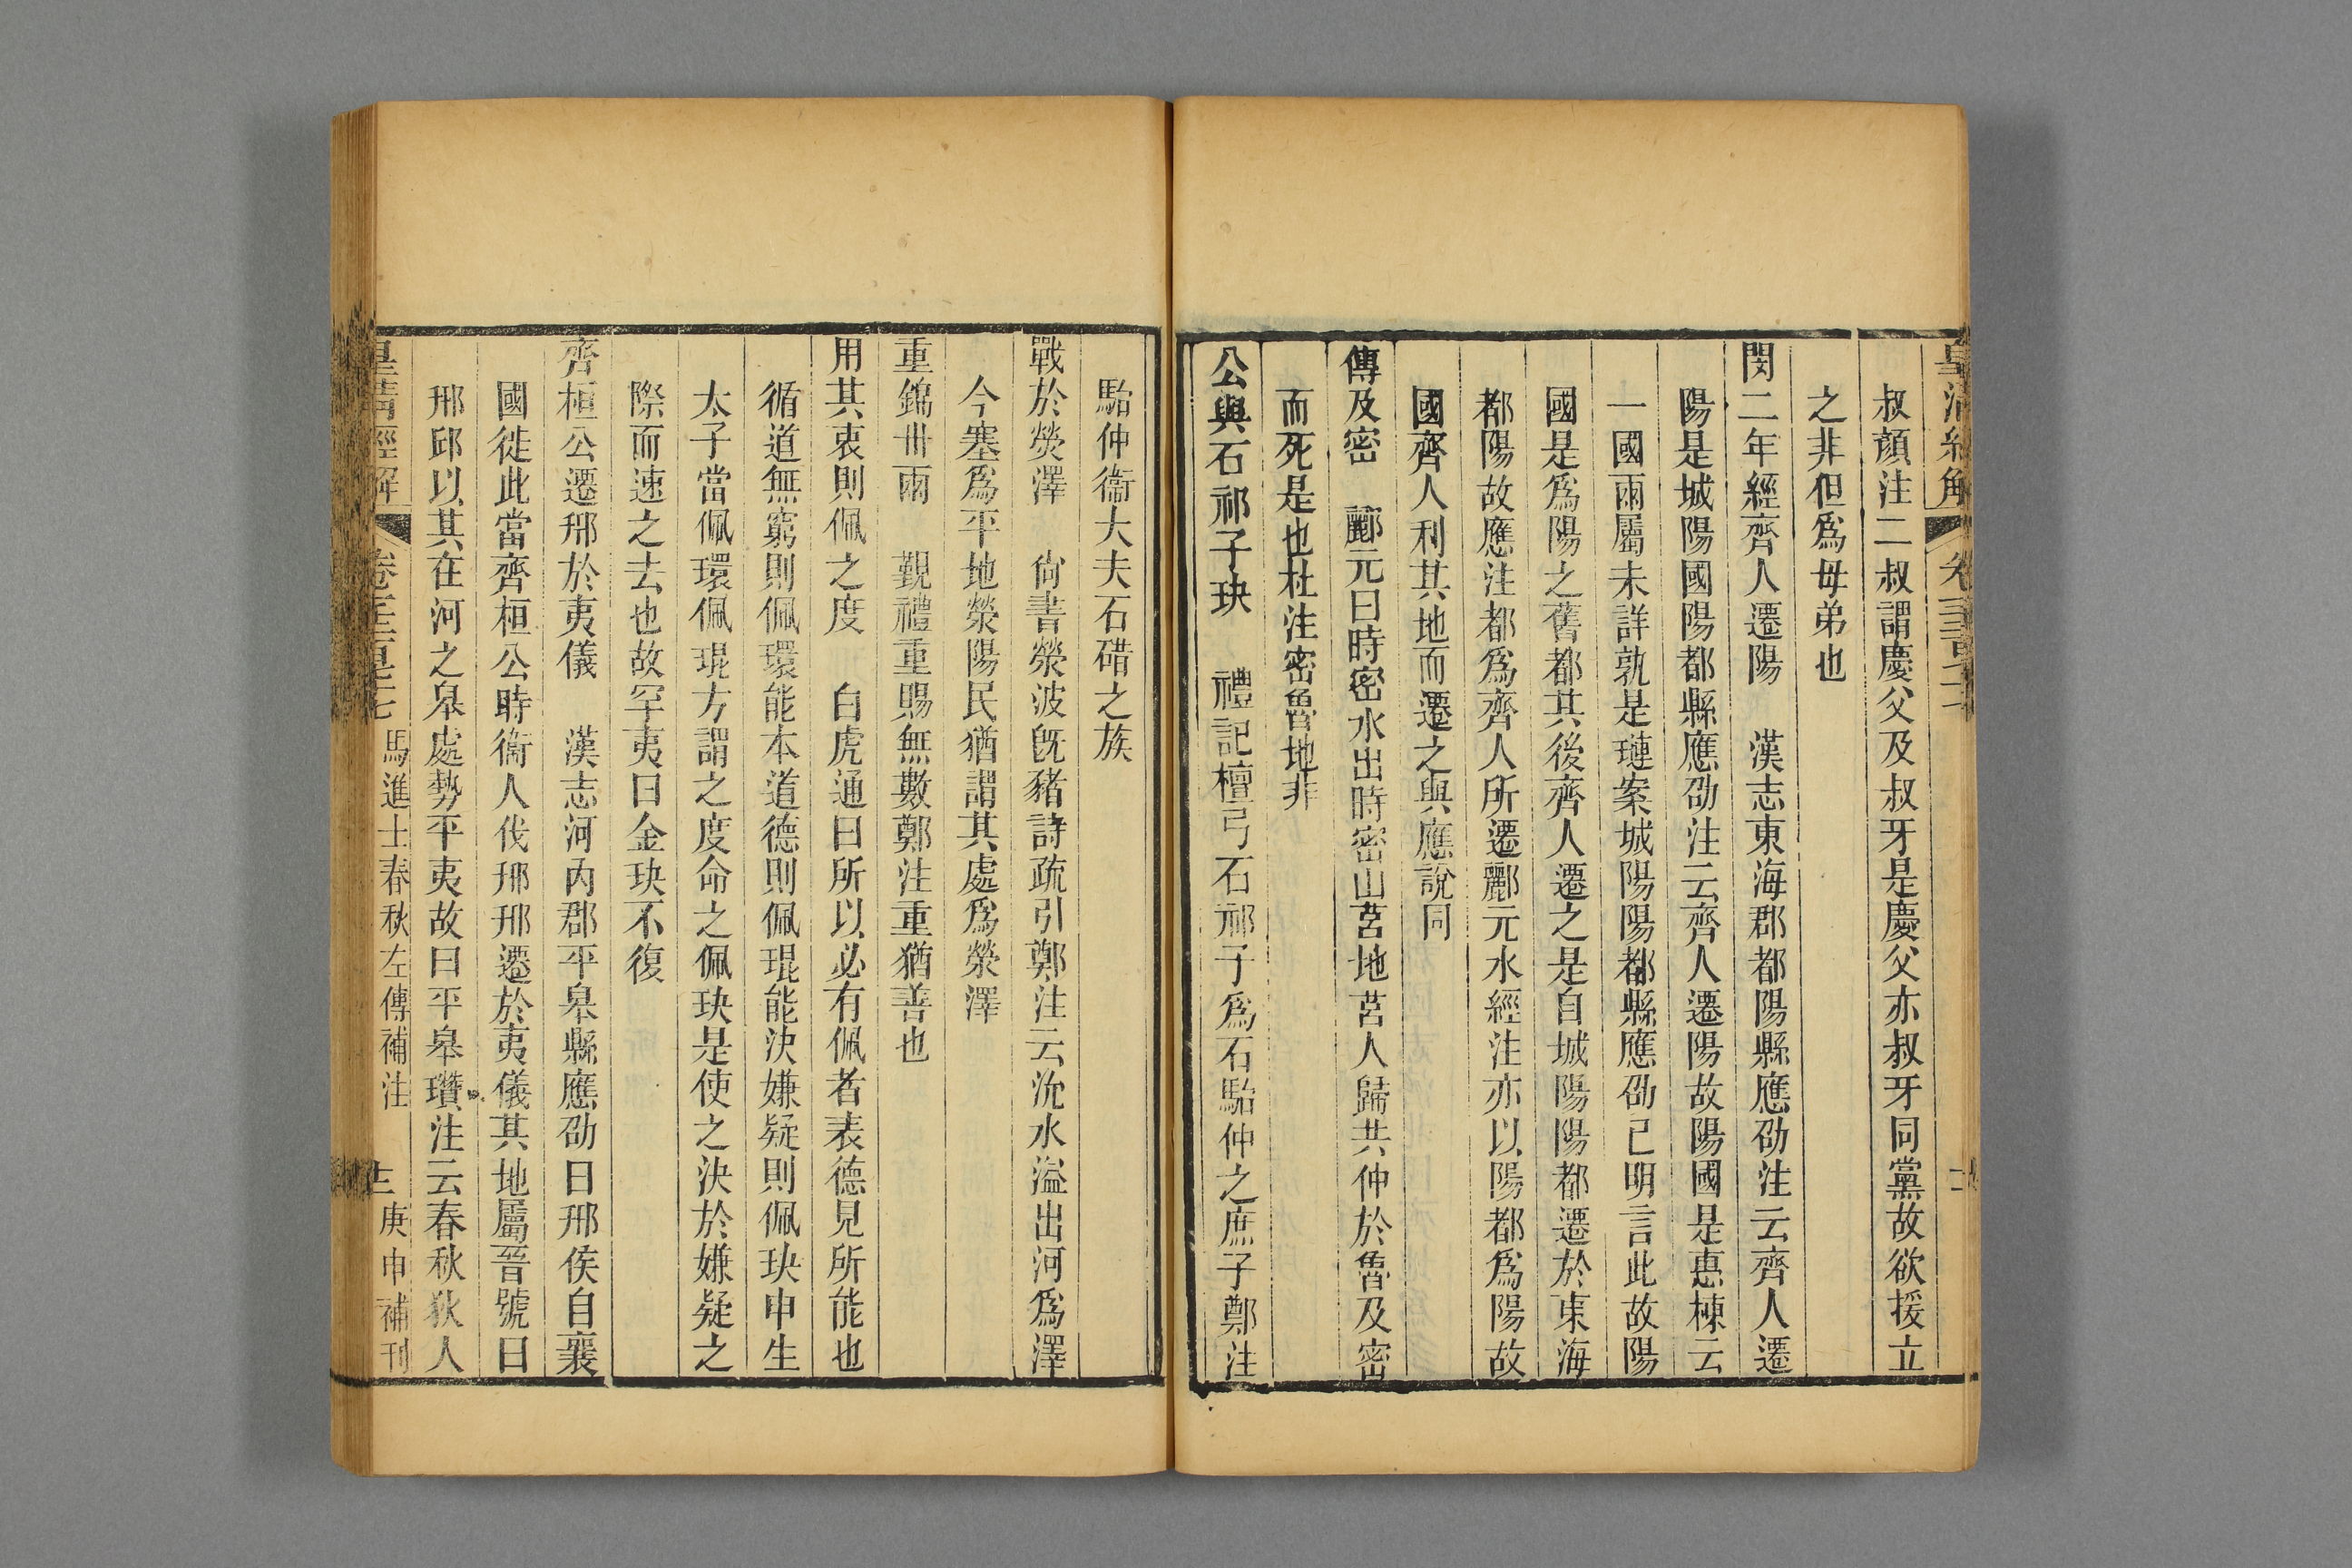 叔顏注二叔謂慶父及叔牙是慶父亦叔牙同黨故欲援立
之非但爲毋弟也
閔二年經齊人遷陽　漢志東海郡都陽縣應劭注云齊人遷
陽是城陽國陽都縣應劭注云齊人遷陽故陽國是惠棟云
一國兩屬未詳孰是璉案城陽陽都縣應劭已明言此故陽
國是爲陽之舊都其後齊人遷之是自城陽陽都遷於東海
都陽故應注都爲齊人所遷酈元水經注亦以陽都爲陽故
國齊人利其地而遷之與應說同
傳及密　酈元曰時密水出時密山莒地莒人歸共仲於魯及密
而死是也杜注密魯地非
公與石祁子玦　禮記檀弓石祁子爲石駘仲之庶子鄭注
駘仲衞大夫石碏之族
戰於熒澤　尙書滎波旣豬詩疏引鄭注云沇水溢出河爲澤
今塞爲平地滎陽民猶謂其處爲滎澤
重錦卅兩　覲禮重賜無數鄭注重猶善也
用其衷則佩之度　白虎通曰所以必有佩者表德見所能也
循道無窮則佩環能本道德則佩琨能決嫌疑則佩玦申生
太子當佩環佩琨方謂之度命之佩玦是使之決於嫌疑之
際而速之去也故罕夷曰金玦不復
齊桓公遷邢於夷儀　漢志河內郡平皋縣應劭曰邢侯自襄
國徙此當齊桓公時衞人伐邢邢遷於夷儀其地屬晉號曰
邢邱以其在河之皋處勢平夷故曰平皋瓚注云春秋狄人
皇淸經解　馬進士春秋左傳補注　庚申補刊